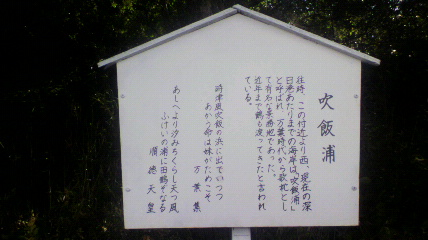 吹飯浦
往時、この付近より西、現在の深
日港あたりまでの海岸は、「吹飯浦」
と呼ばれ、万葉時代から歌枕とし
て有名な景勝地であった。
近年まで鶴も渡ってきたと言われ
ている。
時津風吹飯の浜に出でいつつ
あがふ命は妹がためこそ
万葉集
あしべより汐みちくらし天つ風
ふけいの浦に田鶴ぞなる
順徳天皇